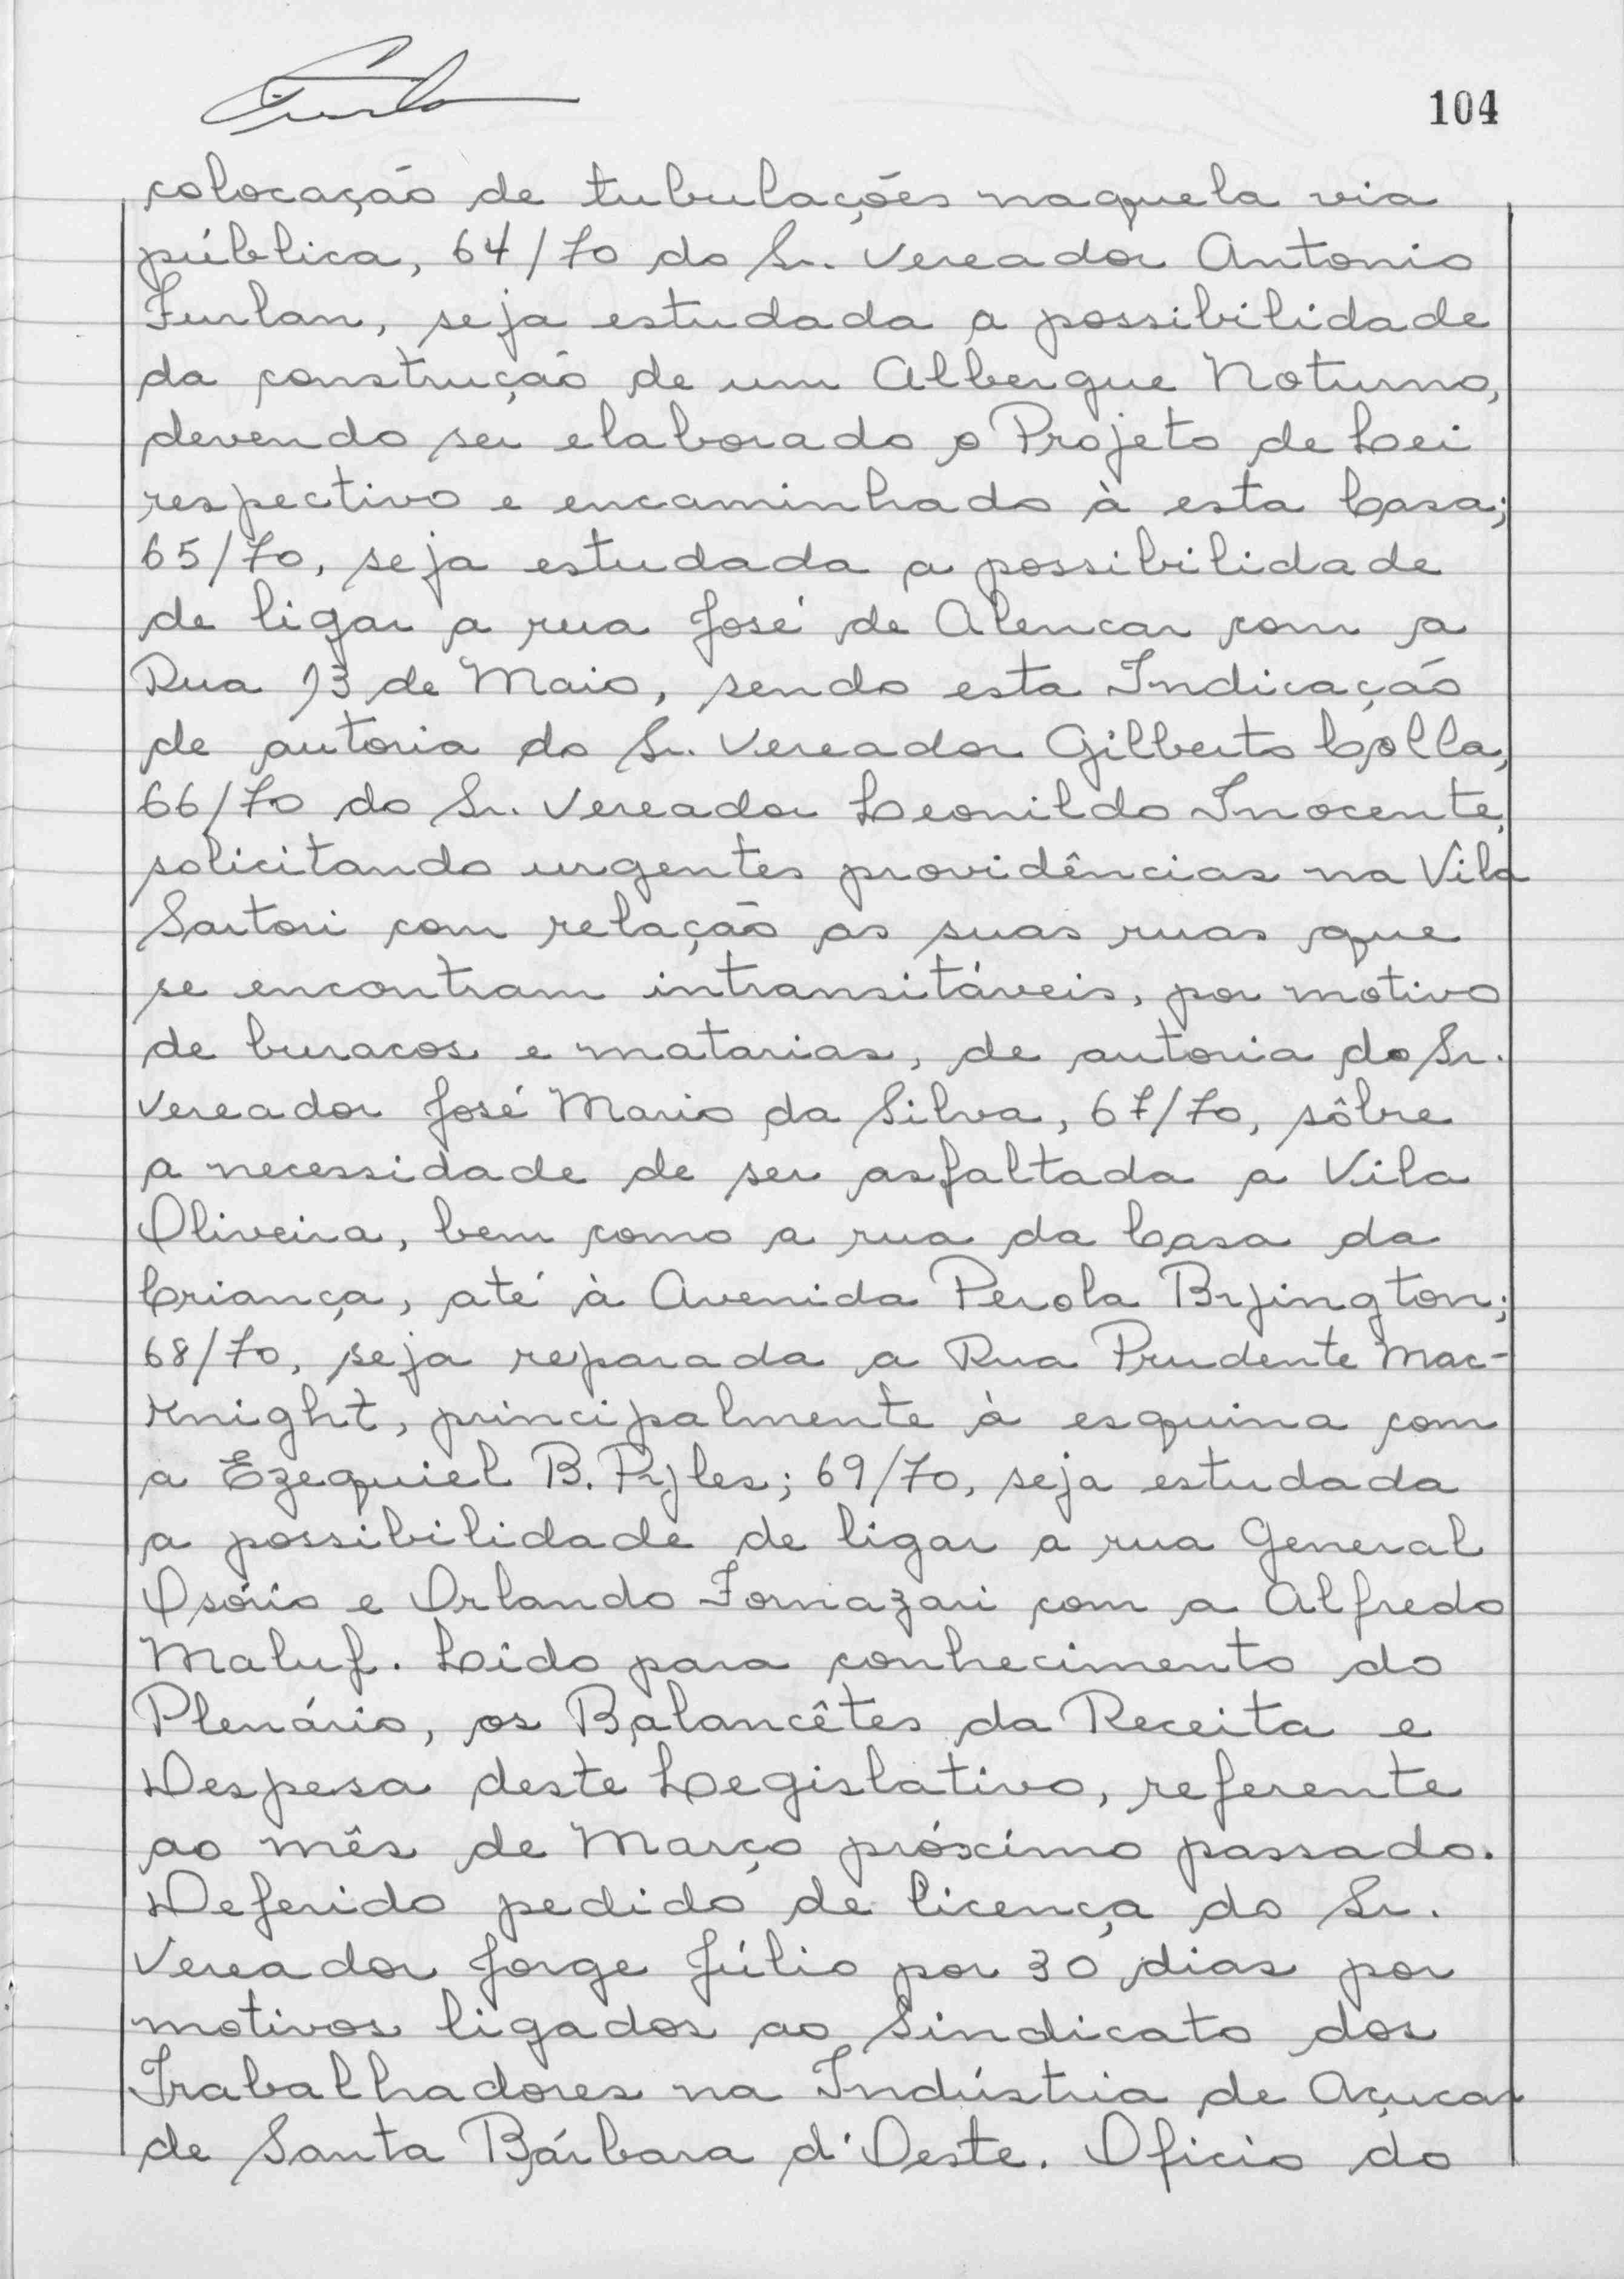 104
colocação de tubulações naquela via
pública, 64/70 do Sr. Vereador Antonio
Furlan, seja estudada a possibilidade
da construção de um Albergue Noturno,
devendo ser elaborado o Projeto de Lei
respectivo e encaminhado à esta Casa;
65/70, seja estudada a possibilidade
de ligar a rua José de Alencar com a
Rua 13 de Maio, sendo esta Indicação
de autoria do Sr. Vereador Gilberto Colla,
66/70 do Sr. Vereador Leonildo Inocente,
solicitando urgentes providências na Vila
Sartori com relação as suas ruas que
se encontram intransitáveis, por motivo
de buracos e matarias, de autoria do Sr.
Vereador José Mario da Silva, 67/70, sôbre
a necessidade de ser asfaltada a Vila
Oliveira, bem como a rua da Casa da
Criança, até à Avenida Perola Byington;
68/70, seja reparada a Rua Prudente Mac-
Knight, principalmente à esquina com
a Ezequiel B. Pyles; 69/70, seja estudada
a possibilidade de ligar a rua General
Osório e Orlando Fornazari com a Alfredo
Maluf. Lido para conhecimento do
Plenário, os Balancêtes da Receita e
Despesa deste Legislativo, referente
ao mês de Março próximo passado.
Deferido pedido de licença do Sr.
Vereador Jorge Júlio por 30 dias por
motivos ligados ao Sindicato dos
Trabalhadores na Indústria de Açucar
de Santa Bárbara d'Oeste. Oficio do